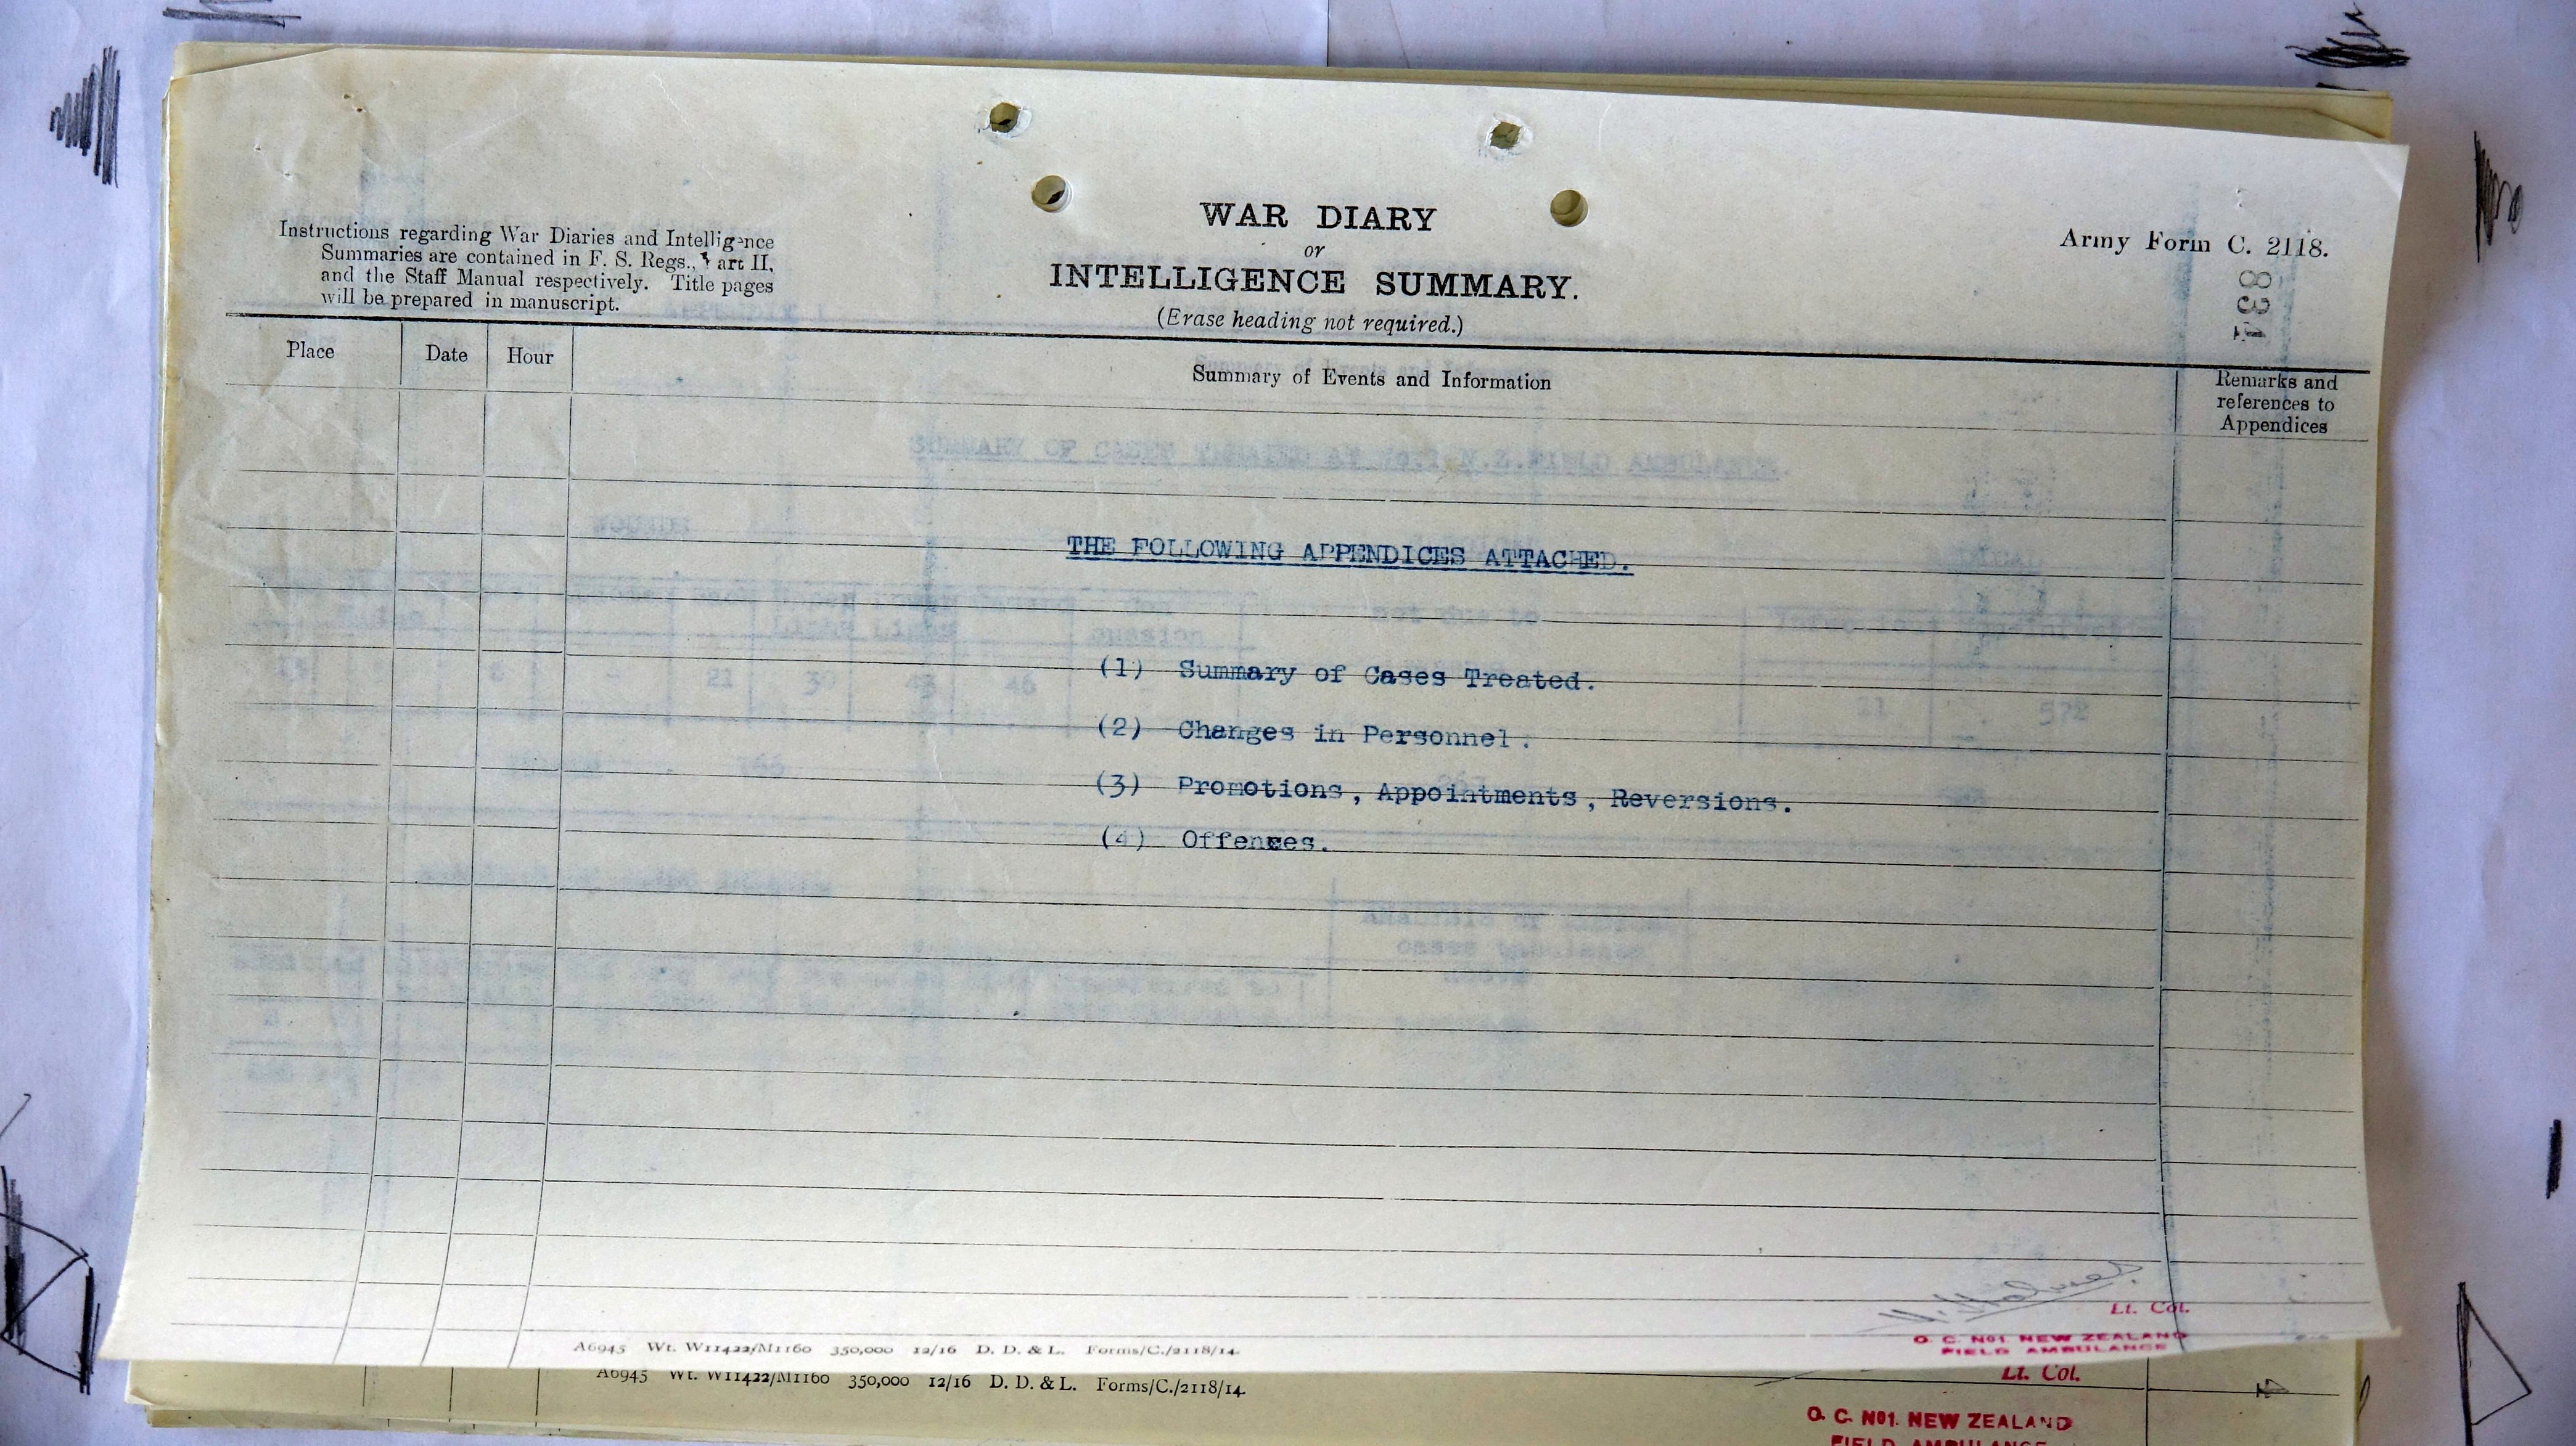 WAR DIARY
or
INTELLIGENCE SUMMARY.
(Erase heading not required.)
Instructions regarding War Diaries and Intelligence
Summaries are contained in F. S. Regs., Part II,
and the Staff Manual respectively. Title pages
will be prepared in manuscript.
Army Form C. 2118.
831
Place
Date
Hour
Summary of Events and Information
Remarks and
references to
Appendices
SUMMARY OF CASES TREATED AT No.1 N.Z.FIELD AMBULANCE.
THE FOLLOWING APPENDICES ATTACHED.
(1) Summary of Cases Treated.
(2) Changes in Personnel.
(3) Promotions, Appointments, Reversions.
(4) Offences.
Lt. Col.
O. C. No1. NEW ZEALAND
FIELD AMBULANCE
A6945 Wt. W11422/M1160 350,000 12/16 D. D. & L. Forms/C./2118/14.
A6945 Wt. W11422/M1160 350,000 12/16 D. D. & L. Forms/C./2118/14.
Lt. Col.
O. C. No1. NEW ZEALAND
FIELD AMBULANCE